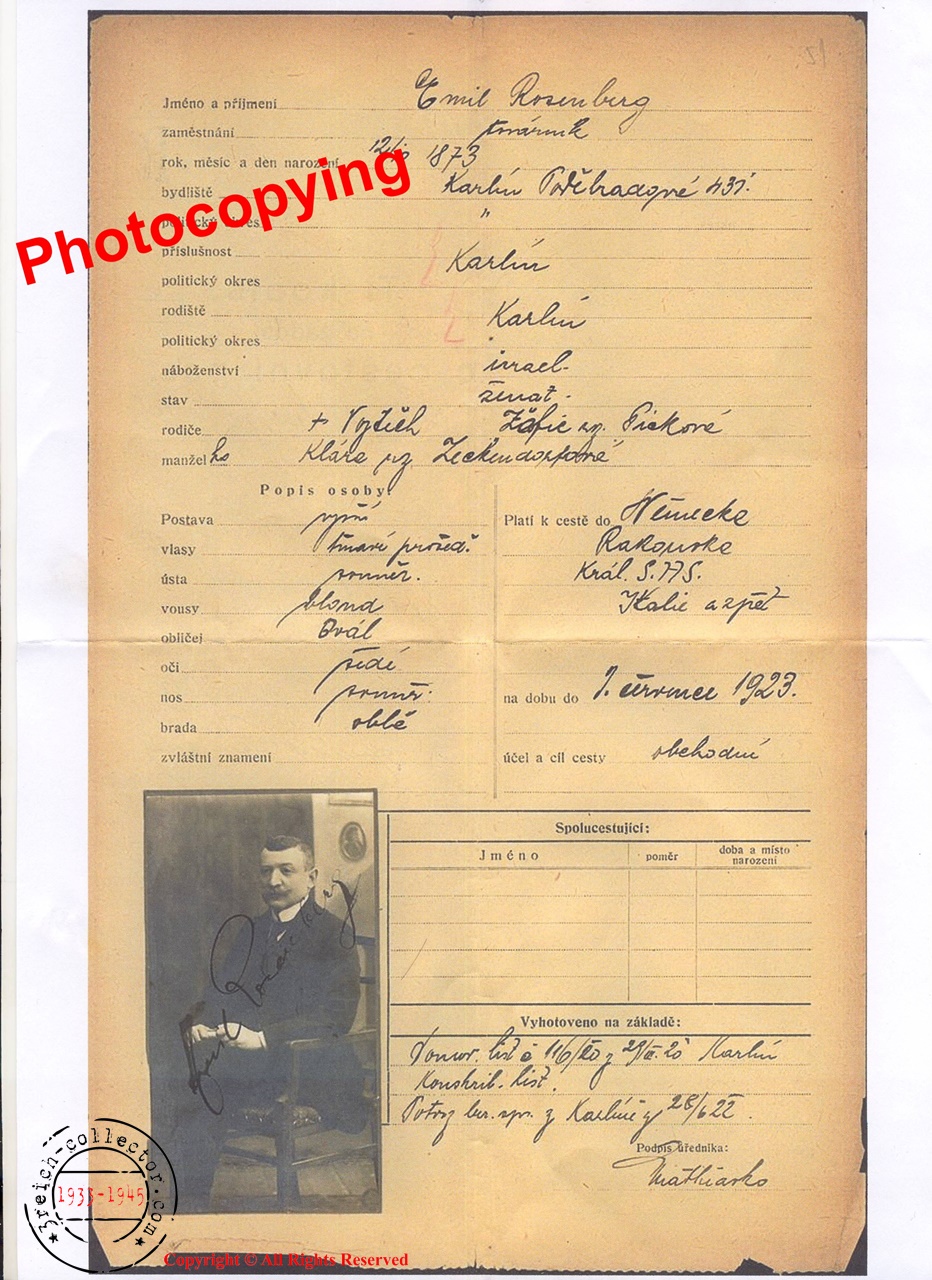 Jméno a příjmení Emil Rosenberg
zaměstnání továrník
rok, měsíc a den narození 1873
bydliště Karlín Poděbradové 431.
politický okres "
příslušnost Karlín
politický okres
rodiště Karlín
politický okres
náboženství israel.
stav ženat.
rodiče + Vojtěch Žofie roz. Pickové
manžel ka Klára roz Zeckendorfové
Popis osoby:
Postava vyšší
vlasy tmavé prošed.
ústa souměr.
vousy blond
obličej Ovál
oči šedé
nos souměr.
brada oblá
zvláštní znamení
Platí k cestě do Německa
Rakouska
Král. S.H.S.
Italie a zpět
na dobu do 1. července 1923.
účel a cíl cesty obchodní
Spolucestující:
Jméno poměr doba a místo narození
Vyhotoveno na základě:
Domov. list č 116/20 z Karlín
Konskrib. list.
Potvrz ber. spr. z Karlína z 28/6 22.
Podpis úředníka:
Emil Rosenberg
Photocopying
3reich-collector.com
1933-1945
Copyright © All Rights Reserved